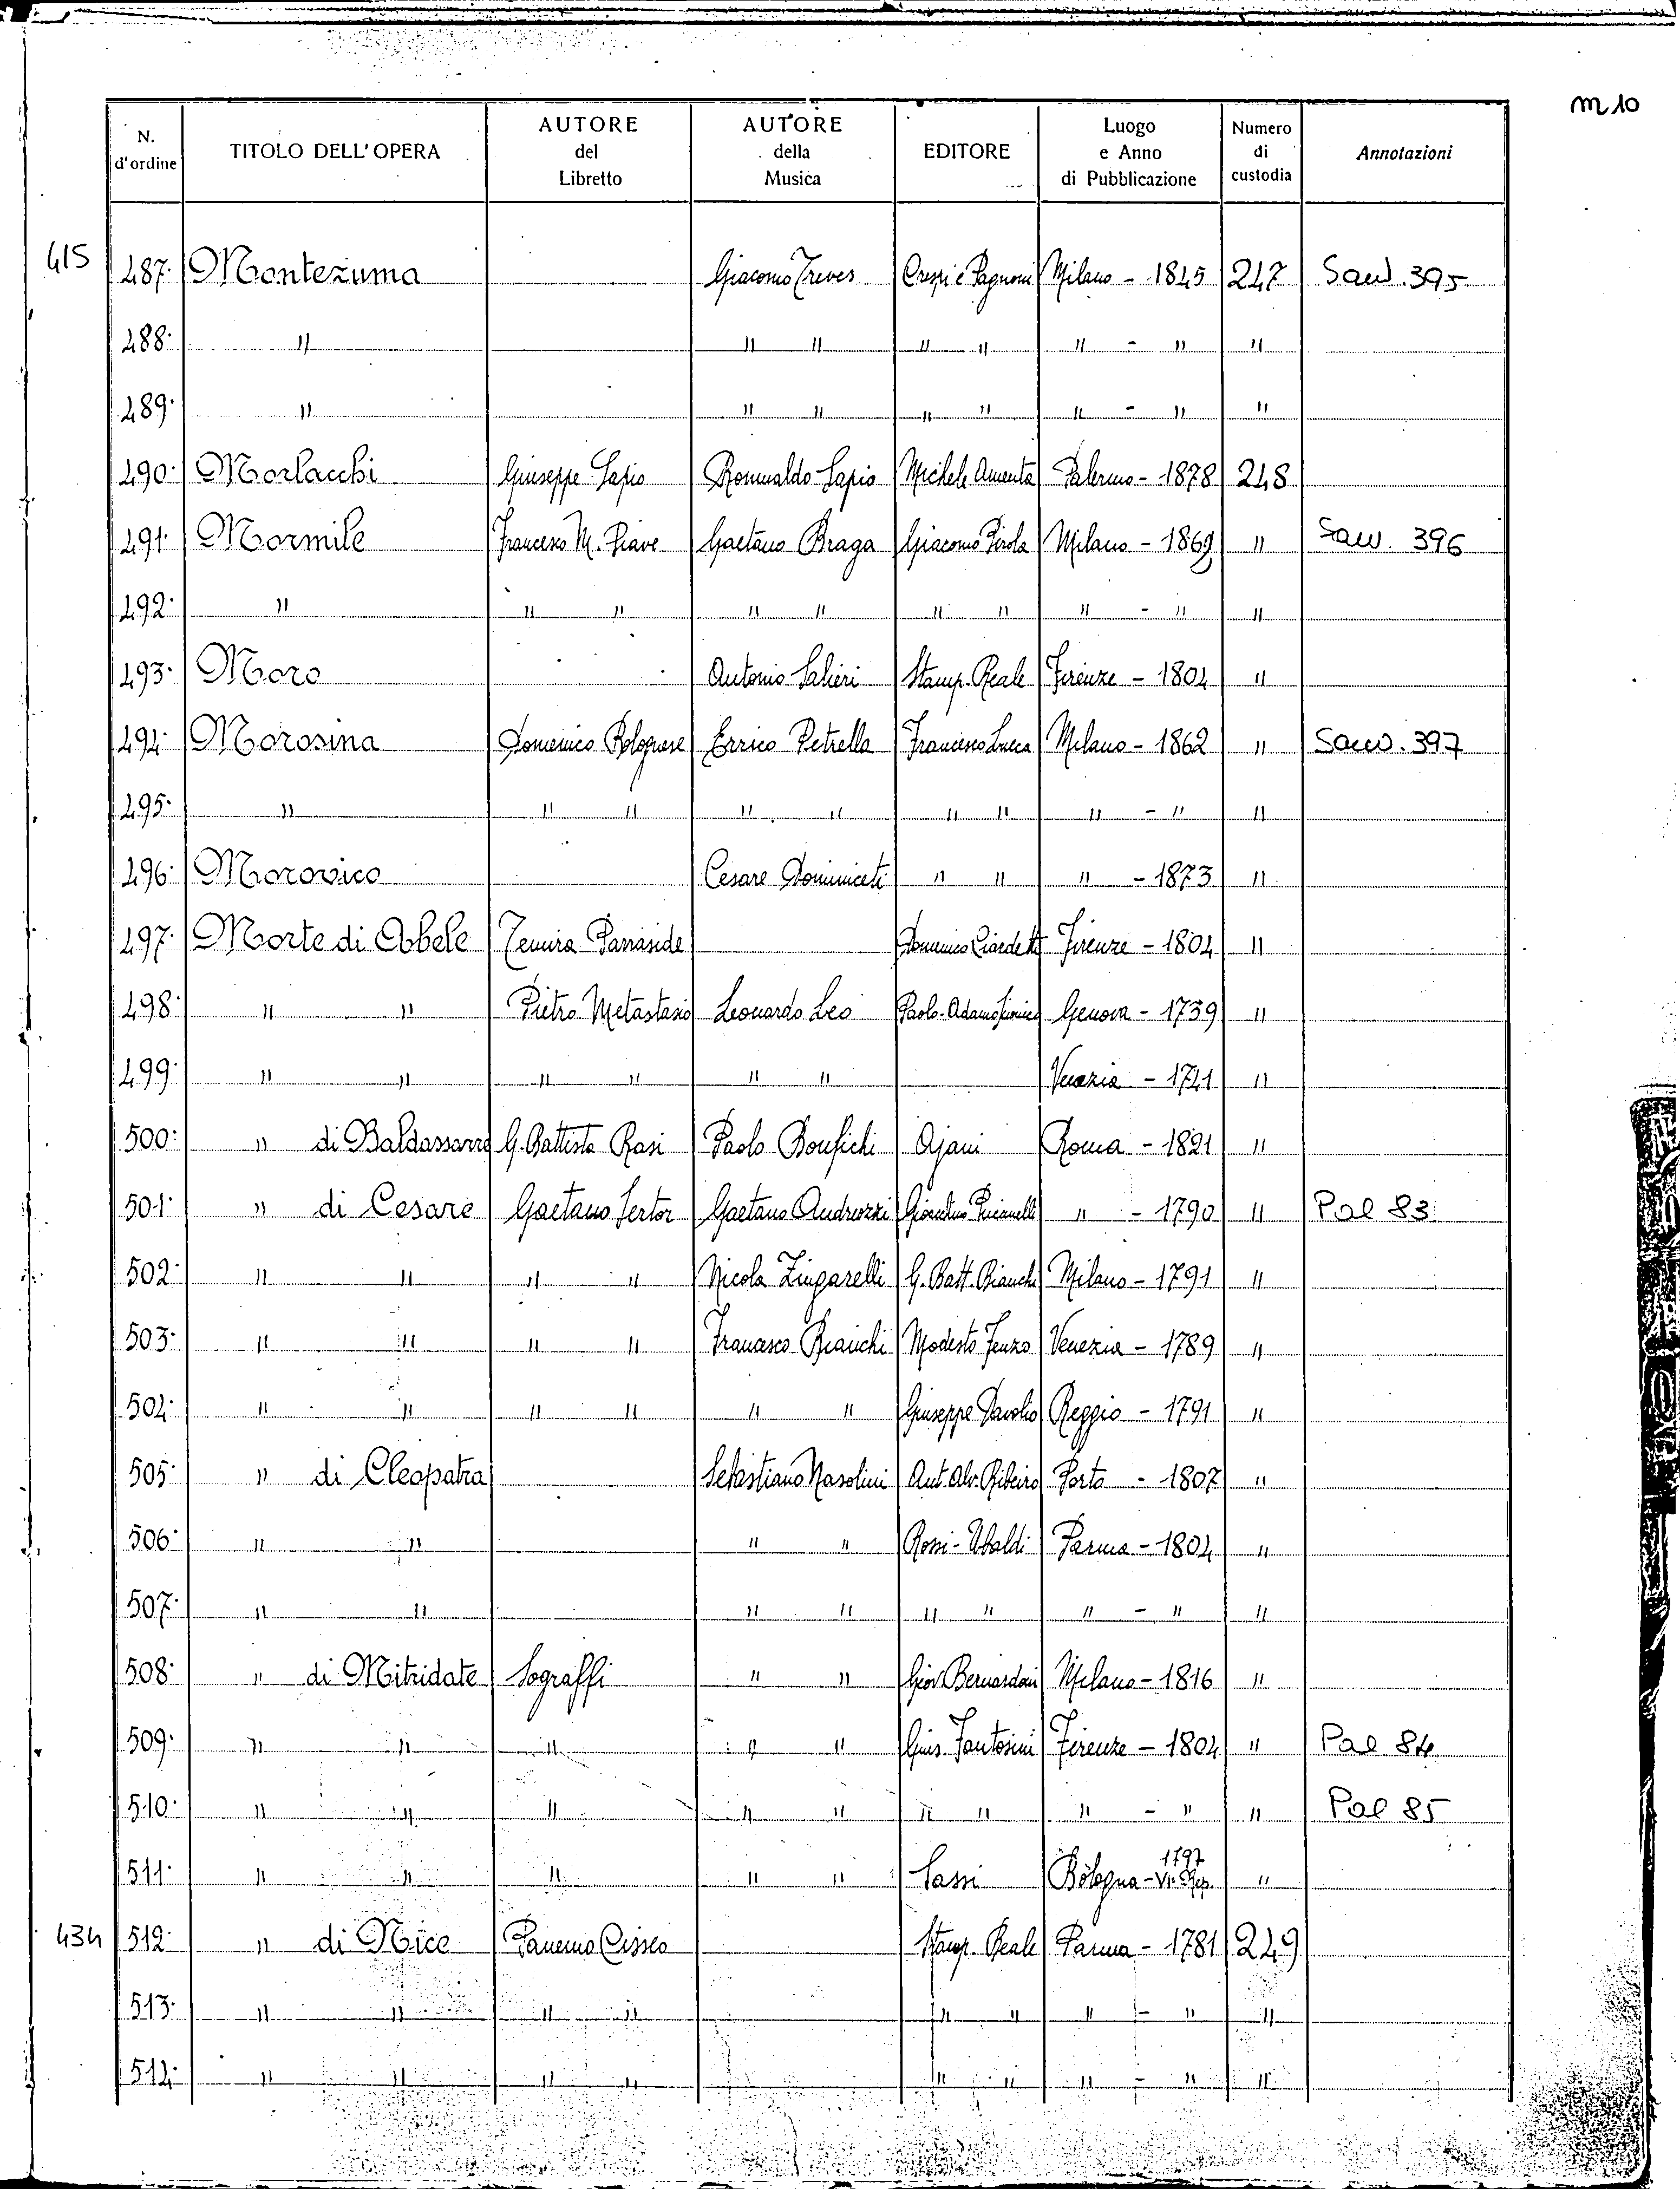 m 10
N. d'ordine TITOLO DELL'OPERA AUTORE del Libretto AUTORE della Musica EDITORE Luogo e Anno di Pubblicazione Numero di custodia Annotazioni
415 487· Montezuma Giacomo Treves Crespi e Pagnoni Milano - 1845 247 Sawd. 395
488· " " " " " " - " "
489· " " " " " " - " "
490· Morlacchi Giuseppe Sapio Romualdo Sapio Michele Amenta Palermo - 1878 248
491· Mormile Francesco M. Piave Gaetano Braga Giacomo Pirola Milano - 1869 " Saw. 396
492· " " " " " " " " - " "
493· Moro Antonio Salieri Stamp. Reale Firenze - 1804 "
494· Morosina Domenico Bolognese Errico Petrella Francesco Lucca Milano - 1862 " Saw. 397
495· " " " " " " " " - " "
496· Morovico Cesare Dominiceti " " " - 1873 "
497· Morte di Abele Temira Parraside Domenico Ciardetti Firenze - 1804 "
498· " " Pietro Metastasio Leonardo Leo Paolo Adamo Genova - 1739 "
499· " " " " " " Venezia - 1741 "
500· " di Baldassarre G. Battista Rasi Paolo Bonfichi Ajani Roma - 1821 "
501· " di Cesare Gaetano Sertor Gaetano Andreozzi Gioacchino Puccinelli " - 1790 " Pal 83
502· " " " " Nicola Zingarelli G. Batt. Bianchi Milano - 1791 "
503· " " " " Francesco Bianchi Modesto Fenzo Venezia - 1789 "
504· " " " " " " Giuseppe Davolio Reggio - 1791 "
505· " di Cleopatra Sebastiano Nasolini Ant. Alv. Ribeiro Porto - 1807 "
506· " " " " Rossi-Ubaldi Parma - 1804 "
507· " " " " " " " - " "
508· " di Mitridate Sograffi " " Giov. Bernardoni Milano - 1816 "
509· " " " " " Gius. Fantosini Firenze - 1804 " Pal 84
510· " " " " " " " " - " " Pal 85
511· " " " " " Sassi Bologna - 1797 VI. Rep. "
434 512· " di Nice Panemo Cisseo Stamp. Reale Parma - 1781 249
513· " " " " " " " - " "
514· " " " " " " " - " "